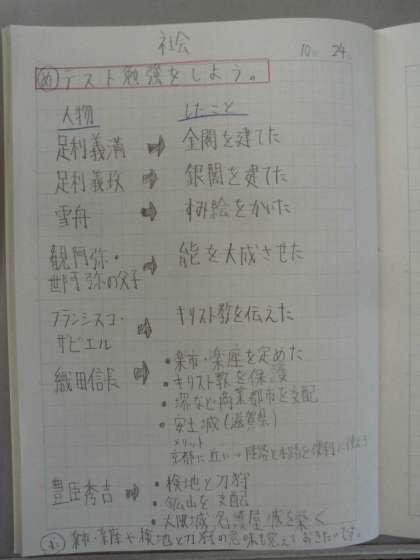 社会
10. 24.
め テスト勉強をしよう。
人物 したこと
足利義満 ➡ 金閣を建てた
足利義政 ➡ 銀閣を建てた
雪舟 ➡ すみ絵をかいた
観阿弥・
世阿弥の父子 ➡ 能を大成させた
フランシスコ・
ザビエル ➡ キリスト教を伝えた
織田信長 ➡ ・楽市・楽座を定めた
・キリスト教を保護
・堺など商業都市を支配
・安土城(滋賀県)
メリット
京都に近い→陸路と水路を便利に使える
豊臣秀吉 ➡ ・検地と刀狩
・鉱山を支配
・大阪城 名護屋城を築く
楽市・楽座や検地と刀狩の意味も覚えておきたいです。